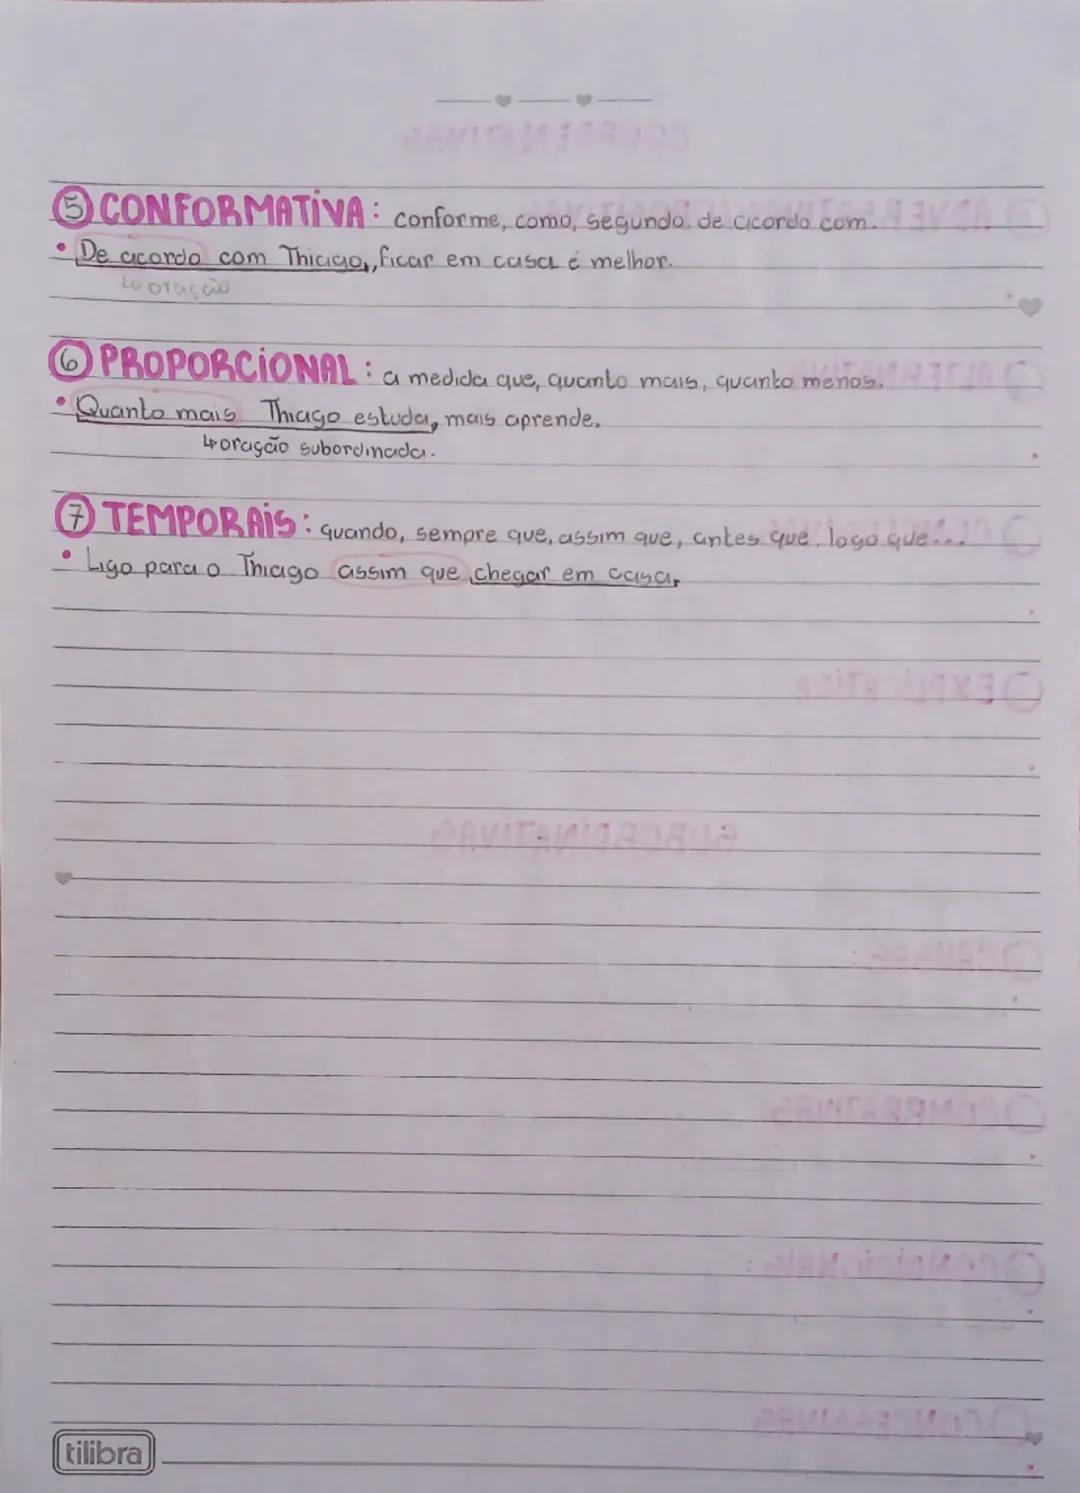 5 CONFORMATIVA: conforme, como, segundo, de acordo com.
• De acordo com Thiago, ficar em casa é melhor.
↳ oração
6 PROPORCIONAL: a medida que, quanto mais, quanto menos.
• Quanto mais Thiago estuda, mais aprende.
↳ oração subordinada.
7 TEMPORAIS: quando, sempre que, assim que, antes que, logo que...
• Ligo para o Thiago assim que chegar em casa.
tilibra